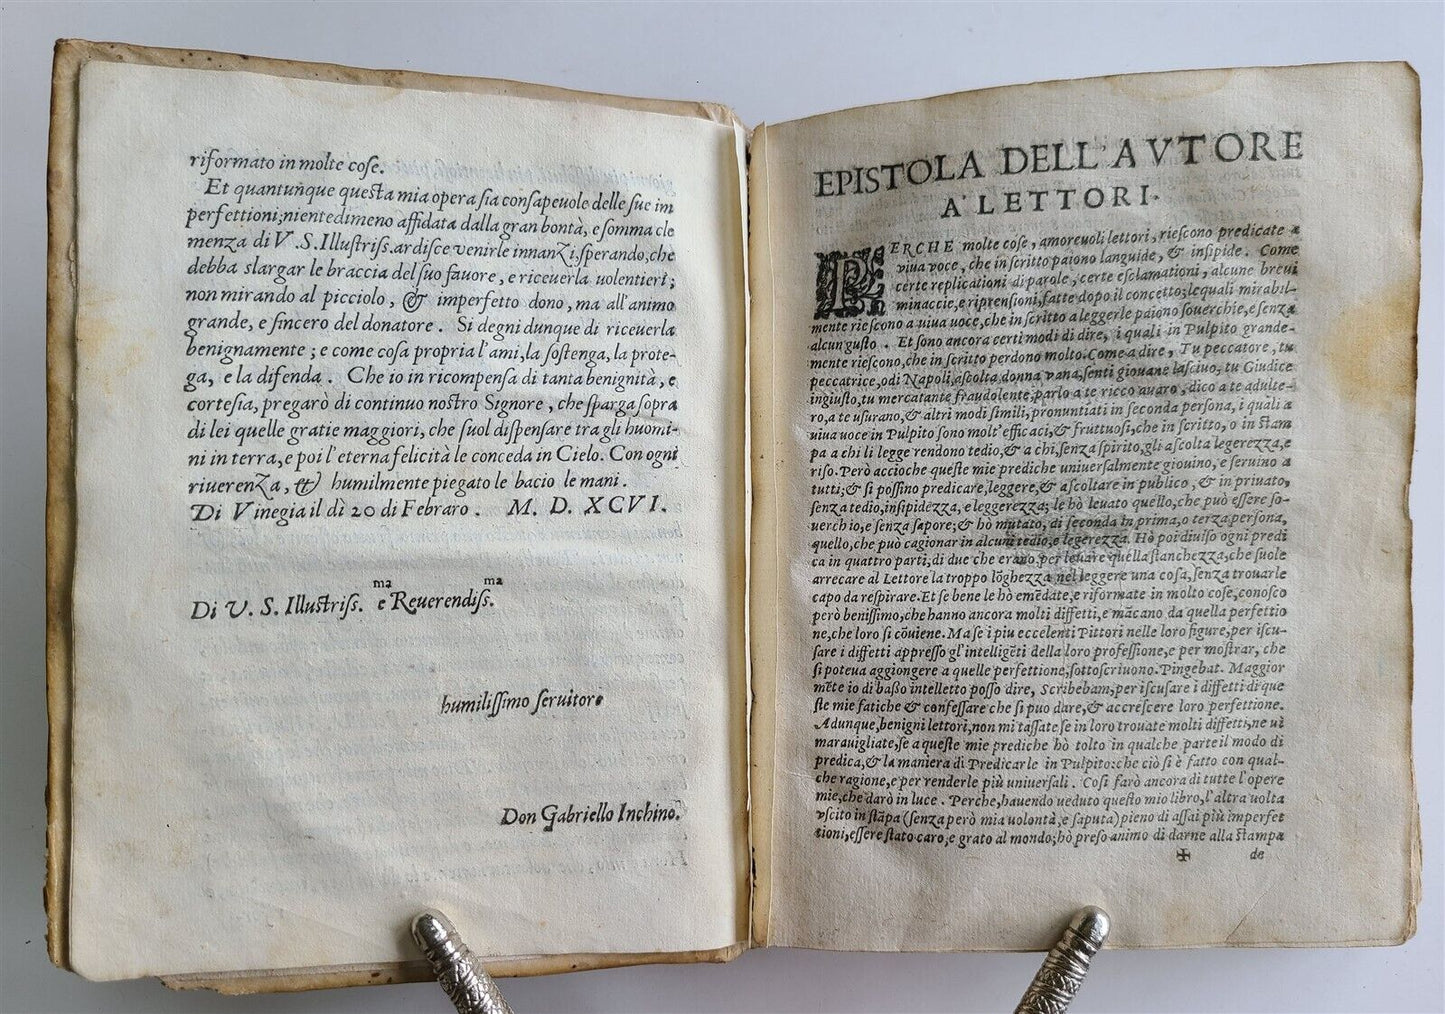 riformato in molte cose.
Et quantunque questa mia opera sia consapeuole delle sue im
perfettioni; nientedimeno affidata dalla gran bontà, e somma cle
menza di V. S. Illustriss. ardisce venirle innanzi, sperando, che
debba slargar le braccia del suo fauore, e riceuerla uolentieri;
non mirando al picciolo, & imperfetto dono, ma all'animo
grande, e sincero del donatore. Si degni dunque di riceuerla
benignamente; e come cosa propria l'ami, la sostenga, la prote-
ga, e la difenda. Che io in ricompensa di tanta benignità, e
cortesia, pregarò di continuo nostro Signore, che sparga sopra
di lei quelle gratie maggiori, che suol dispensare tra gli huomi-
ni in terra, e poi l'eterna felicità le conceda in Cielo. Con ogni
riuerenza, & humilmente piegato le bacio le mani.
Di Vinegia il dì 20 di Febraro. M. D. XCVI.
Di V. S. Illustriss.ma e Reuerendiss.ma
humilissimo seruitore
Don Gabriello Inchino.
EPISTOLA DELL'AVTORE
A' LETTORI.
PERCHE molte cose, amoreuoli lettori, riescono predicate a
viua voce, che in scritto paiono languide, & insipide. Come
certe replicationi di parole, certe esclamationi, alcune breui
minaccie, e riprensioni, fatte dopo il concetto; le quali mirabil-
mente riescono a uiua uoce, che in scritto a leggerle paiono souerchie, e senza
alcun gusto. Et sono ancora certi modi di dire, i quali in Pulpito grande-
mente riescono, che in scritto perdono molto. Come a dire, Tu peccatore, tu
peccatrice, odi Napoli, ascolta donna vana, senti giouane lasciuo, tu Giudice
ingiusto, tu mercatante fraudolente, parlo a te ricco auaro, dico a te adulte-
ro, a te usurano, & altri modi simili, pronuntiati in seconda persona, i quali a
uiua uoce in Pulpito sono molt'efficaci, & fruttuosi, che in scritto, o in stam
pa a chi li legge rendono tedio, & a chi, senza spirito, gli ascolta legerezza, e
riso. Però accioche queste mie prediche uniuersalmente giouino, e seruino a
tutti; & si possino predicare, leggere, & ascoltare in publico, & in priuato,
senza tedio, insipidezza, e leggerezza; le hò leuato quello, che può essere so-
uerchio, e senza sapore; & hò mutato, di seconda in prima, o terza persona,
quello, che può cagionar in alcuni tedio, e legerezza. Hò poi diuiso ogni predi
ca in quattro parti, di due che erano, per leuare quella stanchezza, che suole
arrecare al Lettore la troppo lõghezza nel leggere una cosa, senza trouarle
capo da respirare. Et se bene le hò emẽdate, e riformate in molto cose, conosco
però benissimo, che hanno ancora molti diffetti, e mãcano da quella perfettio
ne, che loro si cõuiene. Ma se i piu eccelenti Pittori nelle loro figure, per iscu-
sare i diffetti appresso gl'intelligẽti della loro professione, e per mostrar, che
si poteua aggiongere a quelle perfettione, sottoscriuono. Pingebat. Maggior
mẽte io di basso intelletto posso dire, Scribebam; per iscusare i diffetti di que
ste mie fatiche & confessare che si puo dare, & accrescere loro perfettione.
Adunque, benigni lettori, non mi tassate se in loro trouate molti diffetti, ne ui
marauigliate, se a queste mie prediche hò tolto in qualche parte il modo di
predica, & la maniera di Predicarle in Pulpito: che ciò si è fatto con qual-
che ragione, e per renderle più uniuersali. Così farò ancora di tutte l'opere
mie, che darò in luce. Perche, hauendo ueduto questo mio libro, l'altra uolta
vscito in stãpa (senza però mia uolontà, e saputa) pieno di assai più imperfet
tioni, essere stato caro, e grato al mondo; hò preso animo di darne alla stampa
✠ de